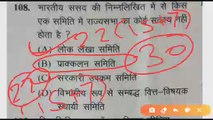 108. भारतीय संसद की निम्नलिखित में से किस
एक समिति में राज्यसभा का कोई सदस्य नहीं
होता है ?
(A) लोक लेखा समिति
(B) प्राक्कलन समिति
30
(C) सरकारी उपक्रम समिति
(D) विभागीय रूप से सम्बद्ध वित्त-विषयक
स्थायी समिति